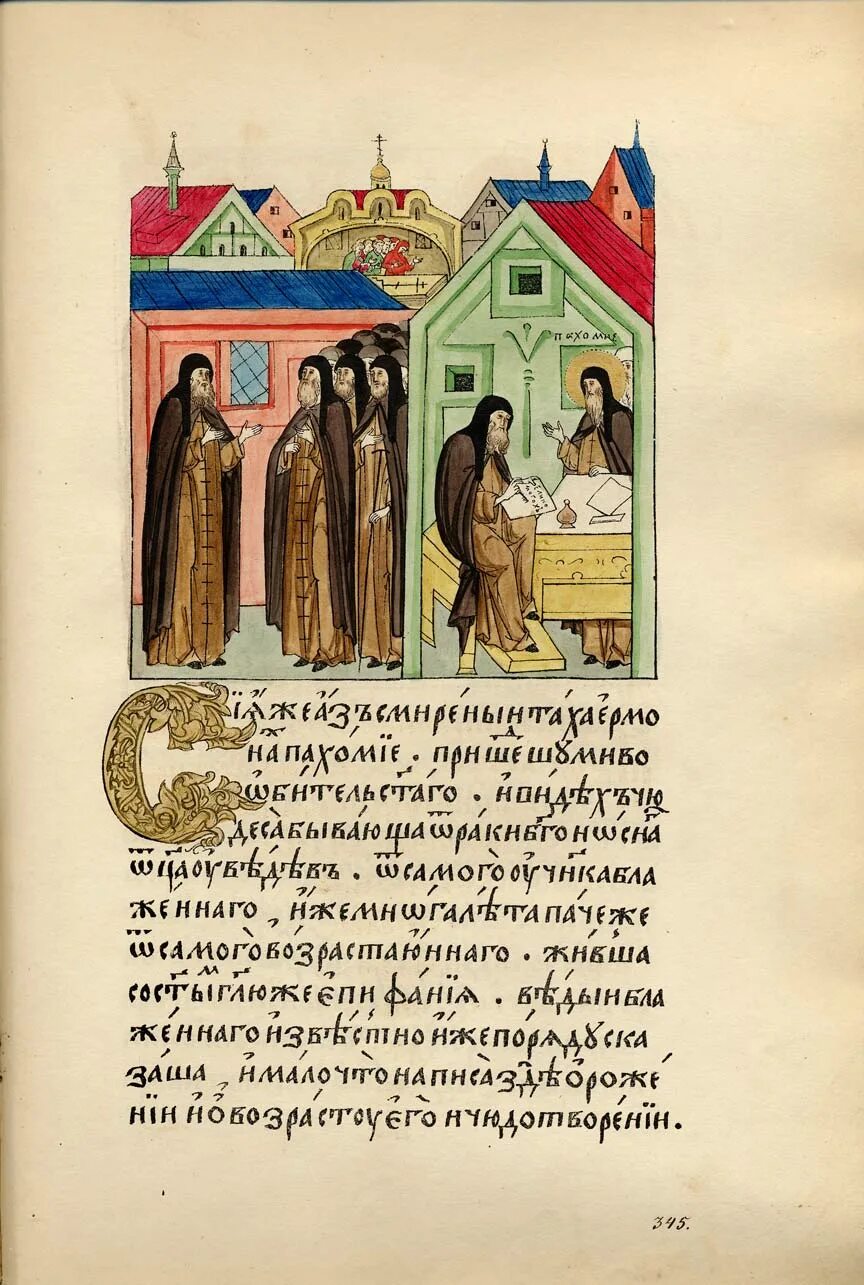 пахомие
Сїѧ҆́же а҆́зъ смире́ныи та́ха е҆рмо
на́пахо́мїе . прише́шꙋми во
ѡ҆би́тельст҃а́го . и҆ви́дѣхъчю
деса̀быва́ющаѿра́киб҃гоно́сна
ѿц҃аоувѣ́дѣвъ . ѿсамого̀оу҆чн҃кабла
же́ннаго , и҆́жемнѡ́галѣ́тапа́чеже
ѿсамого̀во́зрастаю҆́ннаго . жи́вша
сост҃ы́мгл҃южеепифа́нїѧ . вѣ́дыибла
же́ннагои҆звѣ́стнои҆́жепорѧ́дꙋска
за́ша , и҆ма́лочто̀написа̀здѣ̀о҆роже́
нїи и҆ово́зрастоуего̀ичюдотворе́нїи.
345.